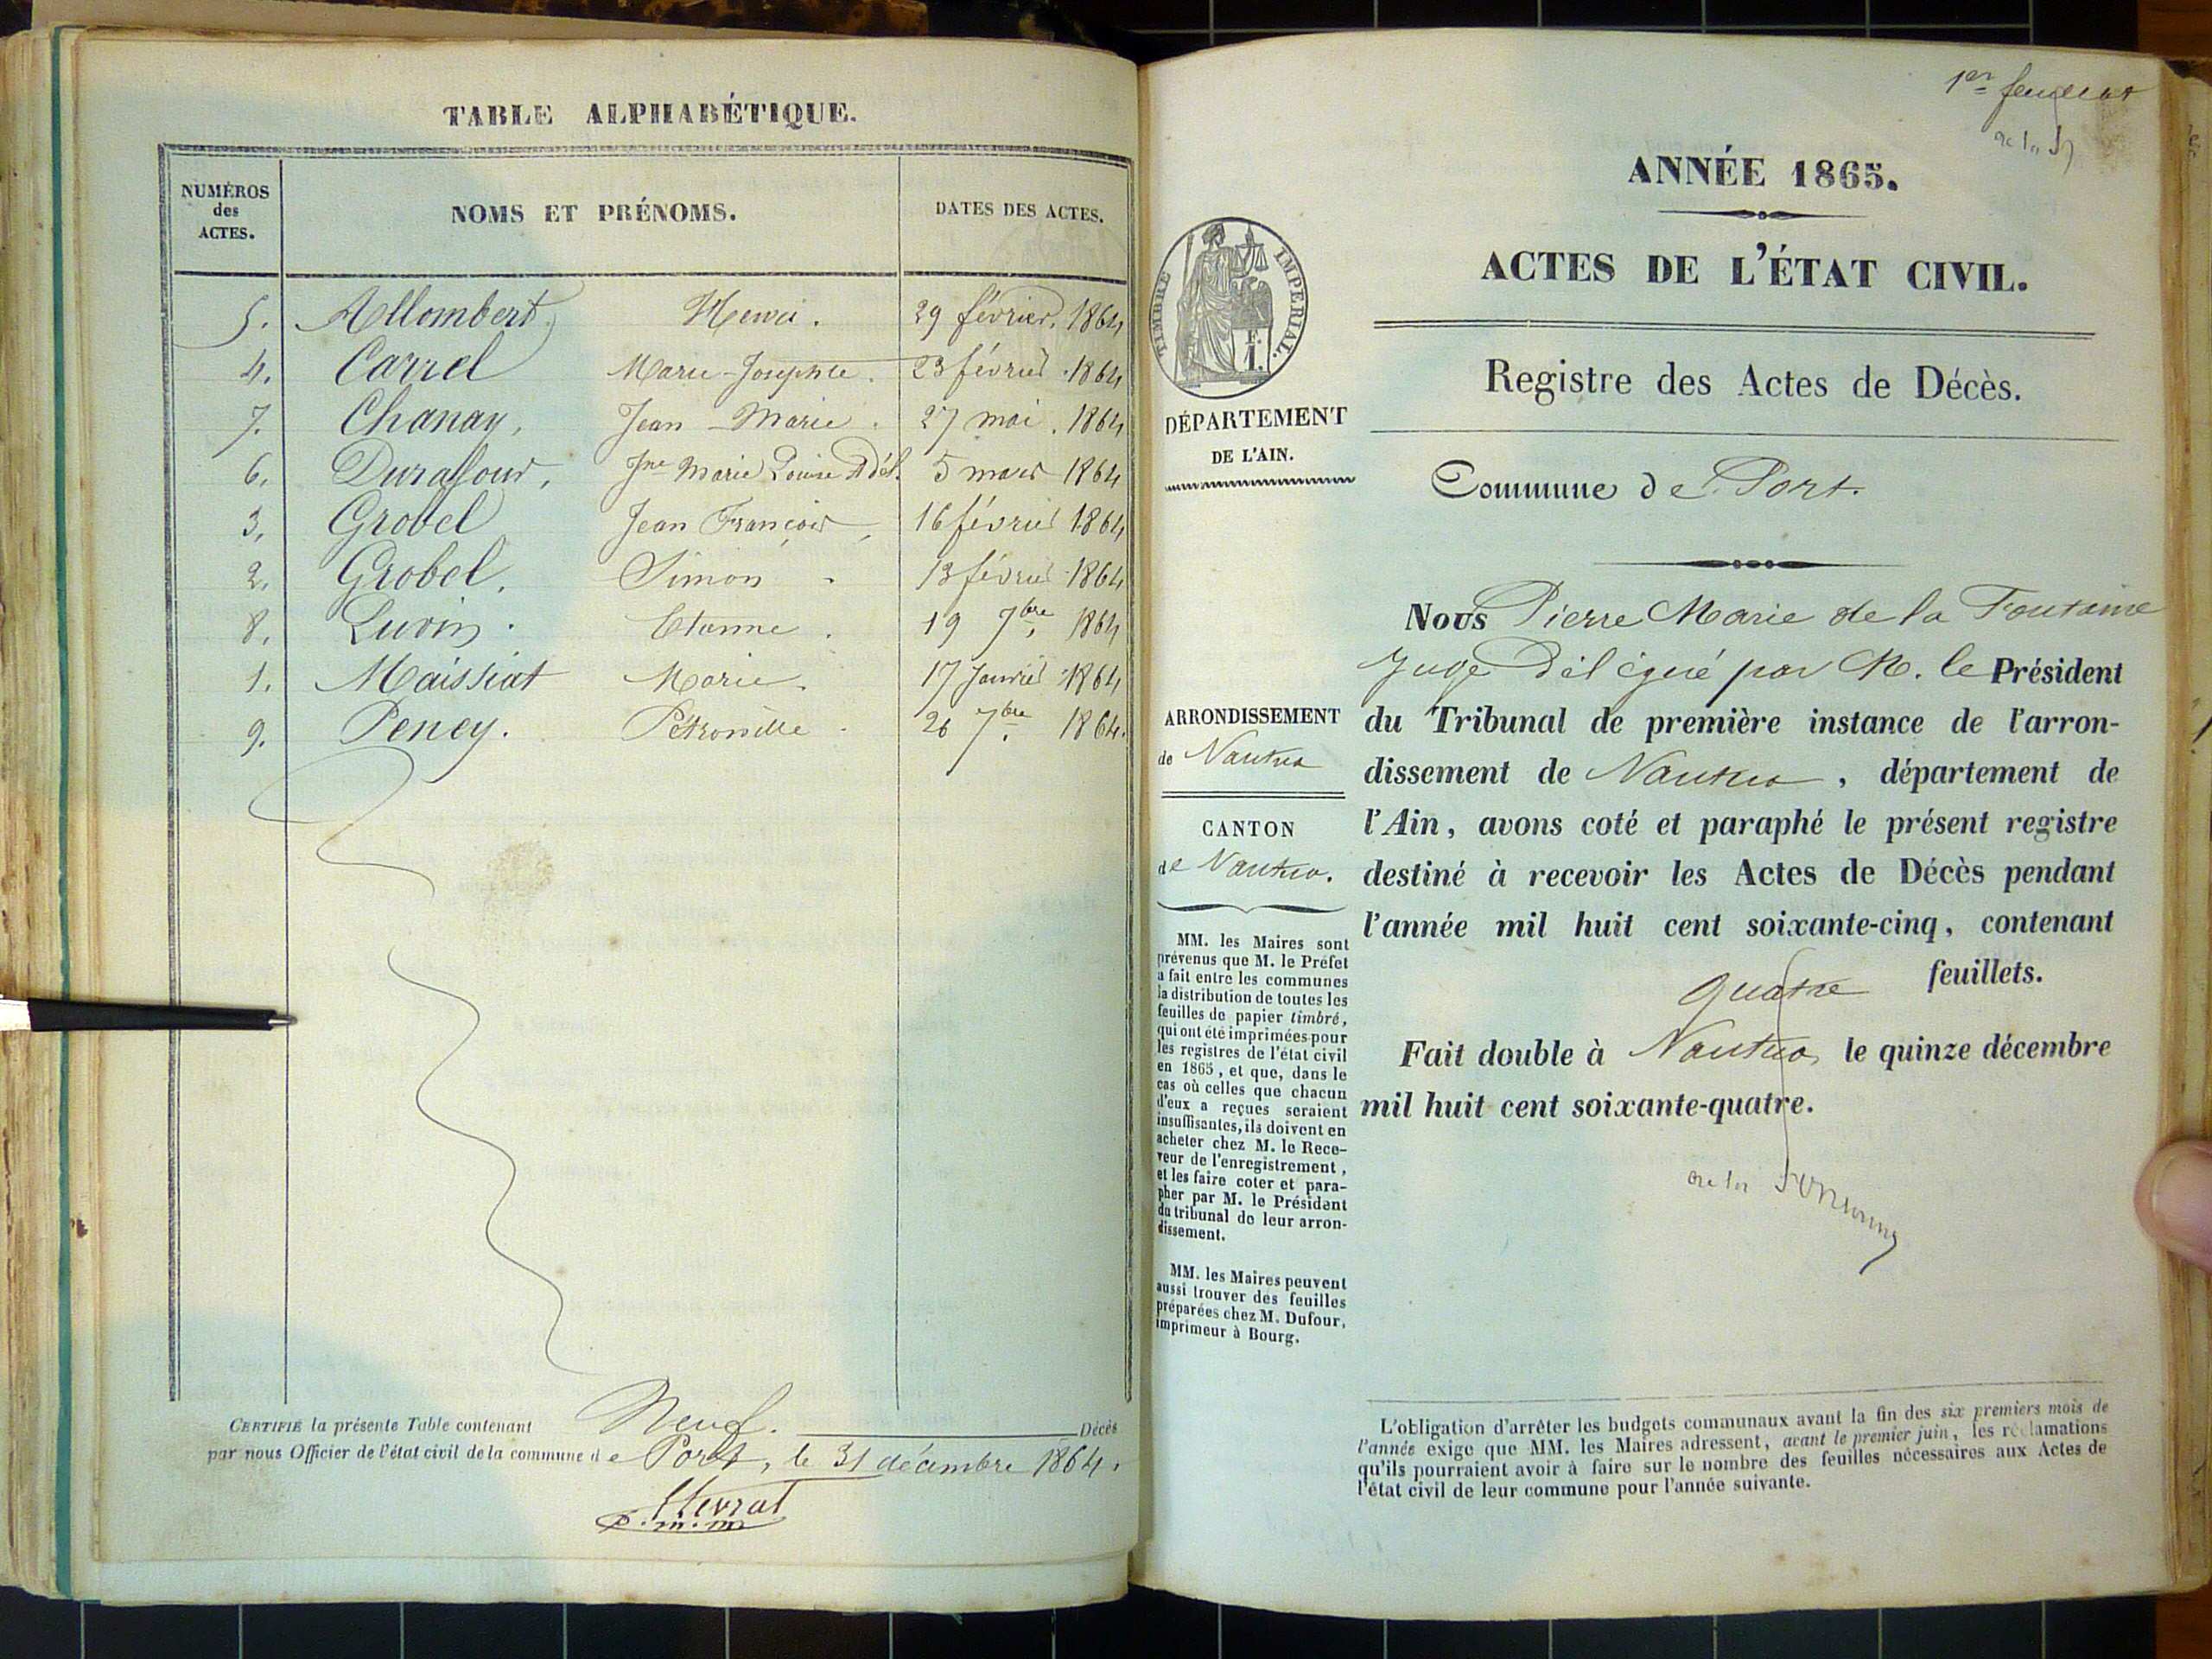 TABLE ALPHABÉTIQUE.
NUMÉROS
des
ACTES.
NOMS ET PRÉNOMS.
DATES DES ACTES.
5. Allombert, Henri. 29 février. 1864
4. Carrel Marie-Josephte. 23 février 1864
7. Chanay, Jean-Marie. 27 mai. 1864
6. Duraffour, Jne Marie Louise Adél. 5 mars 1864
3. Grobel Jean François, 16 février 1864
2. Grobel, Simon 13 février 1864
8. Luvin. Etienne. 19 7bre 1864
1. Maissiat Marie. 17 Janvier 1864
9. Peney. Pétronille 26 7bre 1864.
CERTIFIÉ la présente Table contenant Neuf. Décès
par nous Officier de l'état civil de la commune de Port, le 31 décembre 1864.
1er feuillet
ANNÉE 1865.
ACTES DE L'ÉTAT CIVIL.
TIMBRE IMPÉRIAL.
F.
1.
Registre des Actes de Décès.
DÉPARTEMENT
DE L'AIN.
Commune de Port.
Nous Pierre Marie de la Fontaine
Juge Délégué par M. le Président
du Tribunal de première instance de l'arron-
dissement de Nantua, département de
l'Ain, avons coté et paraphé le présent registre
destiné à recevoir les Actes de Décès pendant
l'année mil huit cent soixante-cinq, contenant
quatre feuillets.
Fait double à Nantua, le quinze décembre
mil huit cent soixante-quatre.
ARRONDISSEMENT
de Nantua
CANTON
de Nantua.
MM. les Maires sont
prévenus que M. le Préfet
a fait entre les communes
la distribution de toutes les
feuilles de papier timbré,
qui ont été imprimées pour
les registres de l'état civil
en 1865, et que, dans le
cas où celles que chacun
d'eux a reçues seraient
insuffisantes, ils doivent en
acheter chez M. le Rece-
veur de l'enregistrement,
et les faire coter et para-
pher par M. le Président
du tribunal de leur arron-
dissement.
MM. les Maires peuvent
aussi trouver des feuilles
préparées chez M. Dufour,
imprimeur à Bourg.
L'obligation d'arrêter les budgets communaux avant la fin des six premiers mois de
l'année exige que MM. les Maires adressent, avant le premier juin, les réclamations
qu'ils pourraient avoir à faire sur le nombre des feuilles nécessaires aux Actes de
l'état civil de leur commune pour l'année suivante.